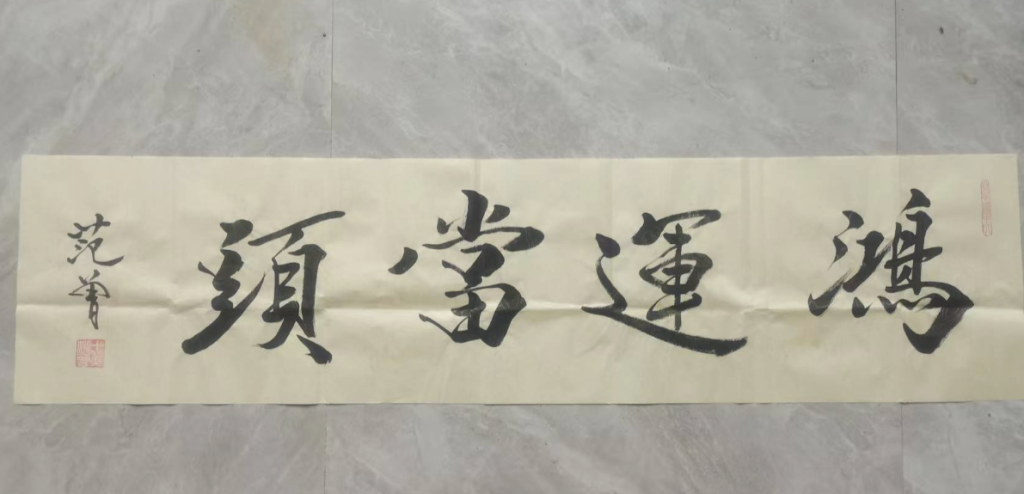 鴻運當頭
范曾